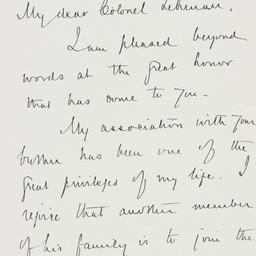 My dear Colonel Lehman,
I am pleased beyond
words at the great honor
that has come to you -
My association with your
brother has been one of the
great privileges of my life. I
rejoice that another member
of his family is to join the